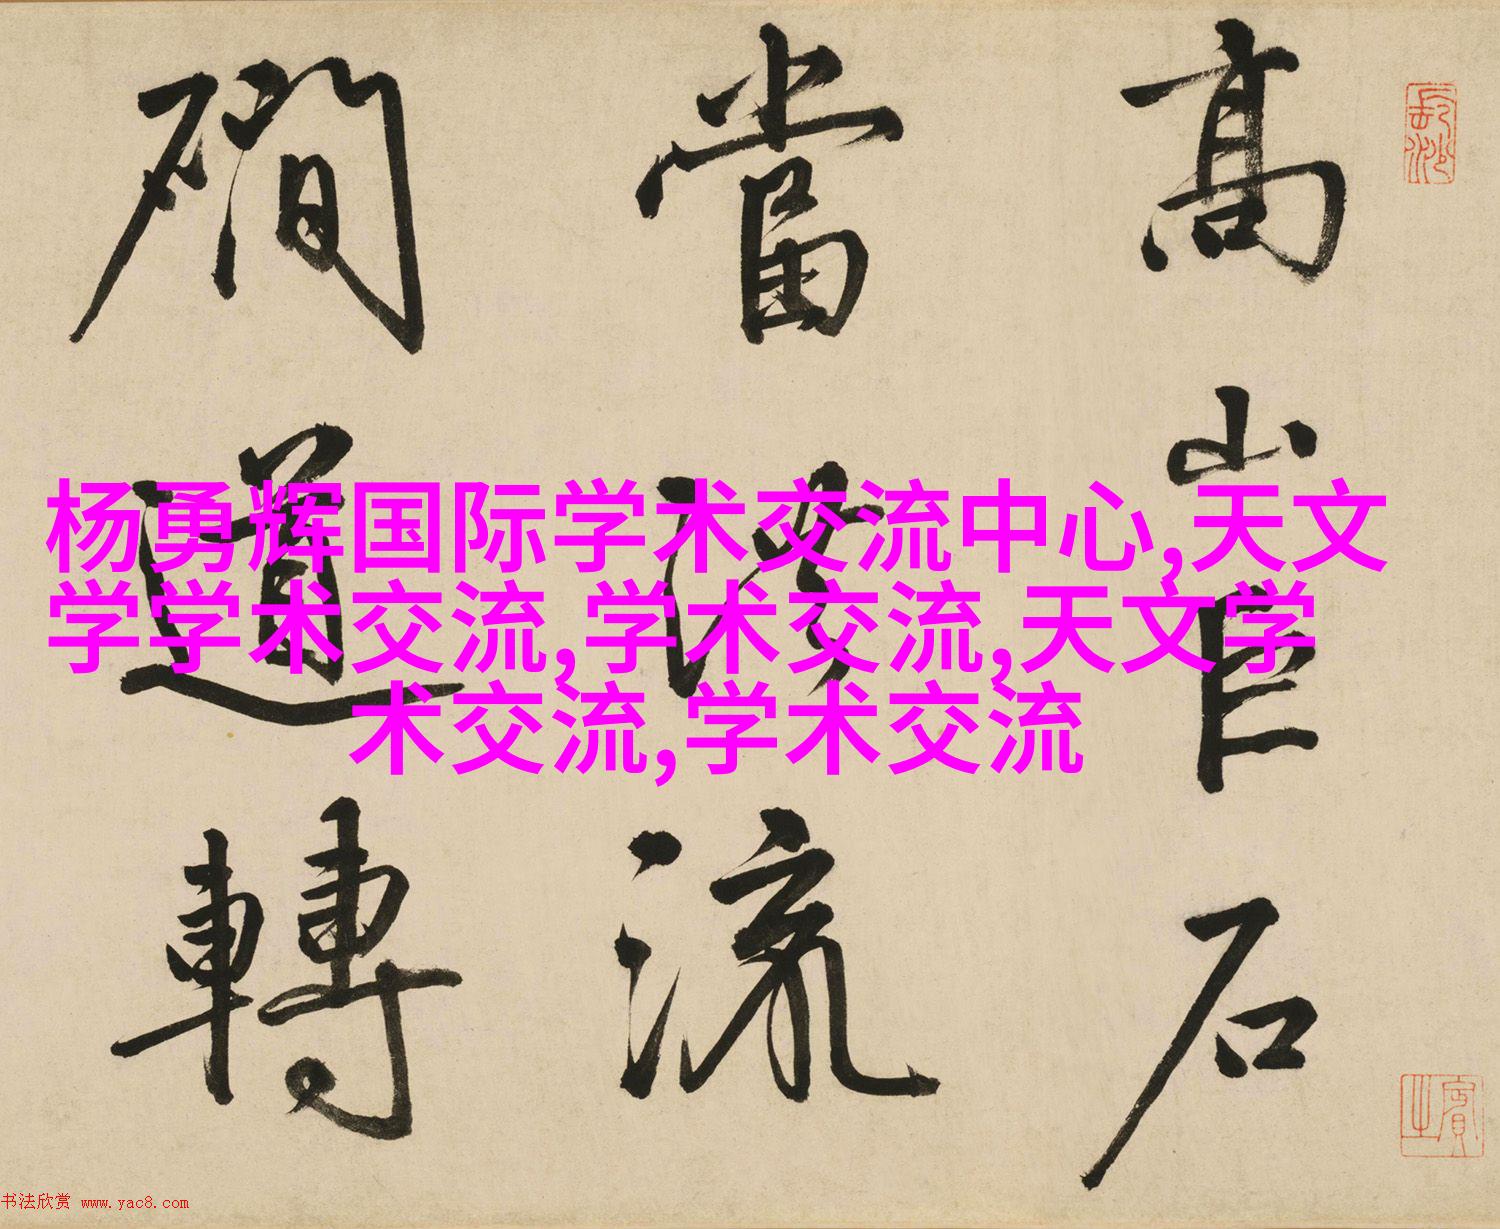 杨勇辉国际学术交流中心,天文
学学术交流,学术交流,天文学
术交流,学术交流
長沙
高山巨石
賓之
當流
磵道轉
书法欣赏 www.yac8.com